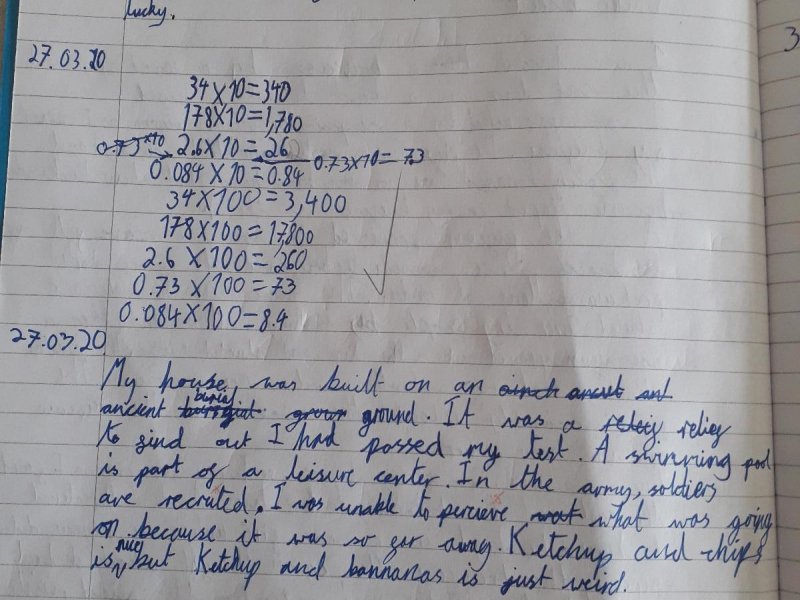 lucky.
27.03.20
3
34×10=340
178×10=1,780
0.73×10 2.6×10=26 0.73×10=7.3
0.084×10=0.84
34×100=3,400
178×100=17,800
2.6×100=260
0.73×100=73
0.084×100=8.4
27.03.20
My house was built on an
ancient burial ground. It was a reliey
to find out I had passed my test. A swimming pool
is part of a leisure center. In the army, soldiers
are recruted. I was unable to percieve what was going
on because it was so far away. Ketchup and chips
is nice, but Ketchup and bannanas is just weird.